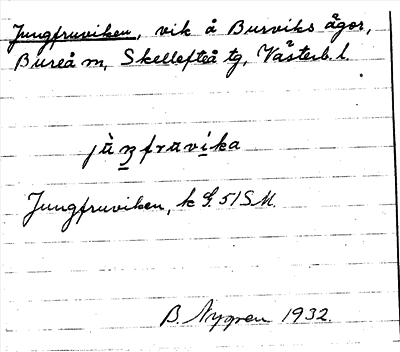 Jungfruviken, vik å Burviks ägor,
Bureå sn, Skellefteå tg, Västerb. l.
jὰŋfravika
Jungfruviken, k G. 51 SM.
B. Nygren 1932.